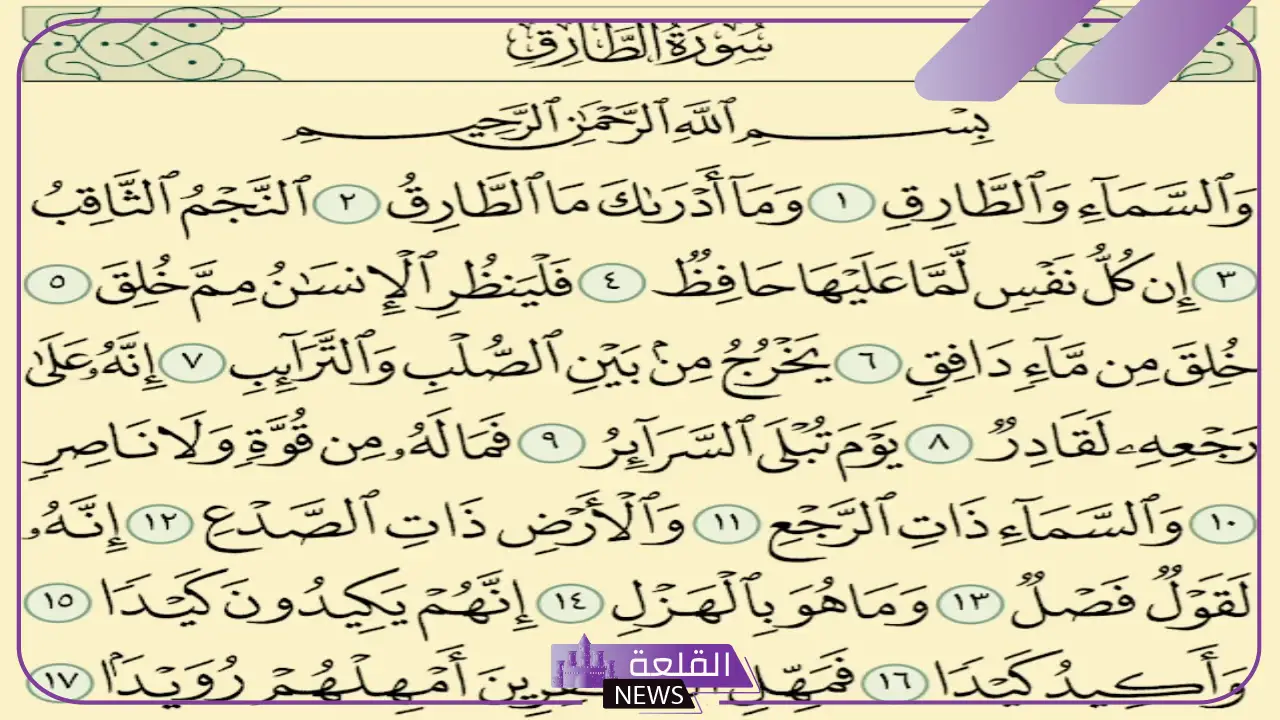 سُورَةُ الطَّارِقِ
بِسْمِ ٱللَّهِ ٱلرَّحْمَٰنِ ٱلرَّحِيمِ
وَٱلسَّمَآءِ وَٱلطَّارِقِ ١ وَمَآ أَدْرَىٰكَ مَا ٱلطَّارِقُ ٢ ٱلنَّجْمُ ٱلثَّاقِبُ
٣ إِن كُلُّ نَفْسٍ لَّمَّا عَلَيْهَا حَافِظٌ ٤ فَلْيَنظُرِ ٱلْإِنسَٰنُ مِمَّ خُلِقَ ٥
خُلِقَ مِن مَّآءٍ دَافِقٍ ٦ يَخْرُجُ مِنۢ بَيْنِ ٱلصُّلْبِ وَٱلتَّرَآئِبِ ٧ إِنَّهُۥ عَلَىٰ
رَجْعِهِۦ لَقَادِرٌ ٨ يَوْمَ تُبْلَى ٱلسَّرَآئِرُ ٩ فَمَا لَهُۥ مِن قُوَّةٍ وَلَا نَاصِرٍ
١٠ وَٱلسَّمَآءِ ذَاتِ ٱلرَّجْعِ ١١ وَٱلْأَرْضِ ذَاتِ ٱلصَّدْعِ ١٢ إِنَّهُۥ
لَقَوْلٌ فَصْلٌ ١٣ وَمَا هُوَ بِٱلْهَزْلِ ١٤ إِنَّهُمْ يَكِيدُونَ كَيْدًا ١٥
وَأَكِيدُ كَيْدًا ١٦ فَمَهِّلِ أَمْهِلْهُمْ رُوَيْدًۢا ١٧
القلعة
NEWS